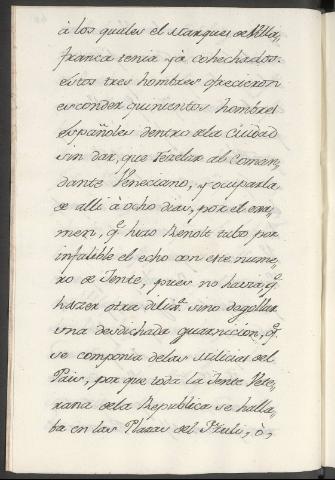 à los quales el Marques de Villa,
franca tenia yà cohechados:
estos tres hombres ofrecieron
esconder quinientos hombres
Españoles dentro de la Ciudad
sin dar, que rezelar al Coman,
dante Veneciano, y ocuparla
de alli à ocho dias, por el exa,
men, q.e hizo Renolt tubo por
infalible el echo con este nume,
ro de Jente, pues no havia, q.e
hazer otra dilix.a sino degollar
una desdichada guarnicion, q.e
se componia de las Milicias del
Pais, por que toda la Jente Vete,
rana de la Republica se halla,
ba en las Plazas del Friuli, ò,